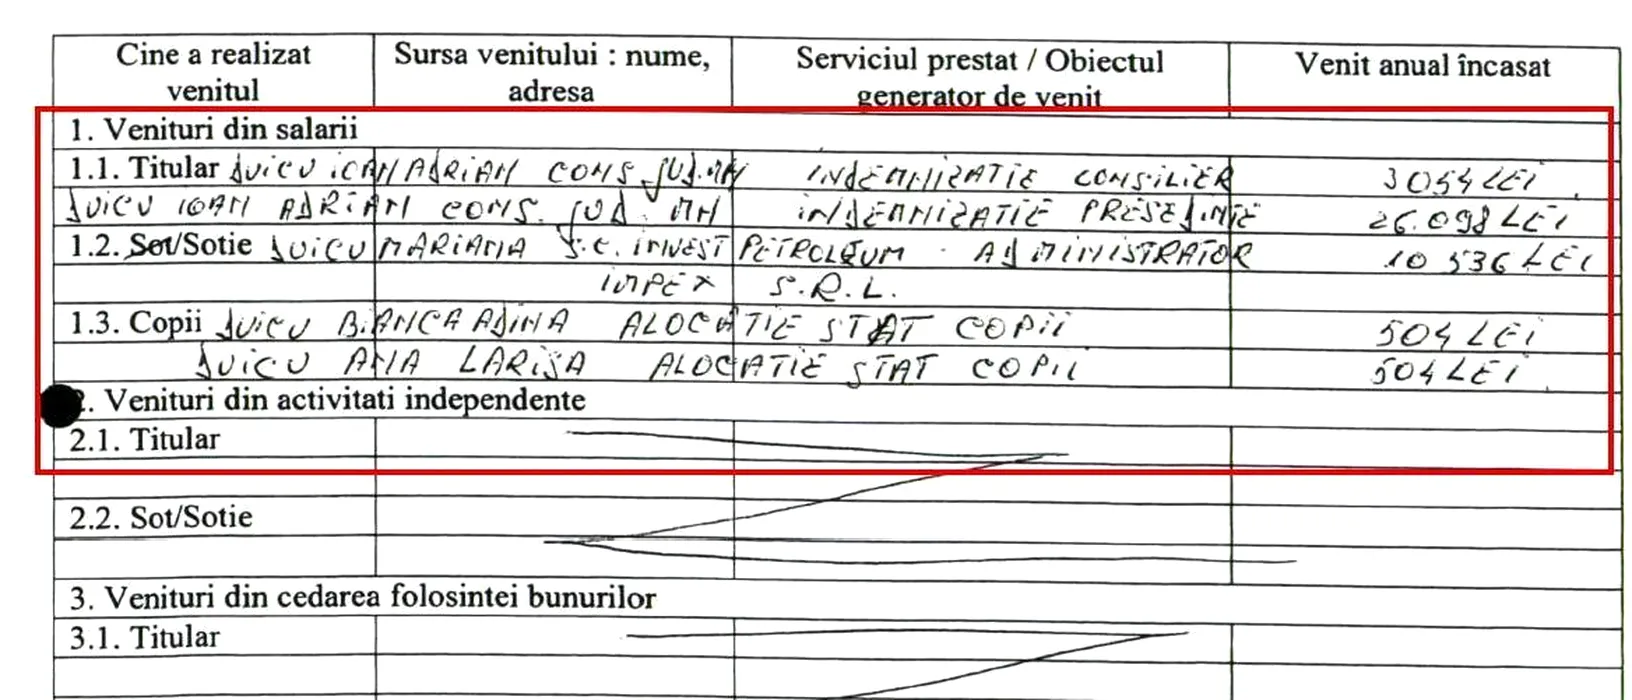 Cine a realizat venitul Sursa venitului : nume, adresa Serviciul prestat / Obiectul generator de venit Venit anual încasat
1. Venituri din salarii
1.1. Titular DUICU IOAN ADRIAN CONS. JUD. MH INDEMNIZATIE CONSILIER 3054 LEI
DUICU IOAN ADRIAN CONS. JUD. MH INDEMNIZATIE PRESEDINTE 26.098 LEI
1.2. Sot/Sotie DUICU MARIANA S.C. INVEST PETROLEUM - ADMINISTRATOR 10 536 LEI
IMPEX S.R.L.
1.3. Copii DUICU BIANCA ADINA ALOCATIE STAT COPII 504 LEI
DUICU ANA LARISA ALOCATIE STAT COPII 504 LEI
2. Venituri din activitati independente
2.1. Titular
2.2. Sot/Sotie
3. Venituri din cedarea folosintei bunurilor
3.1. Titular